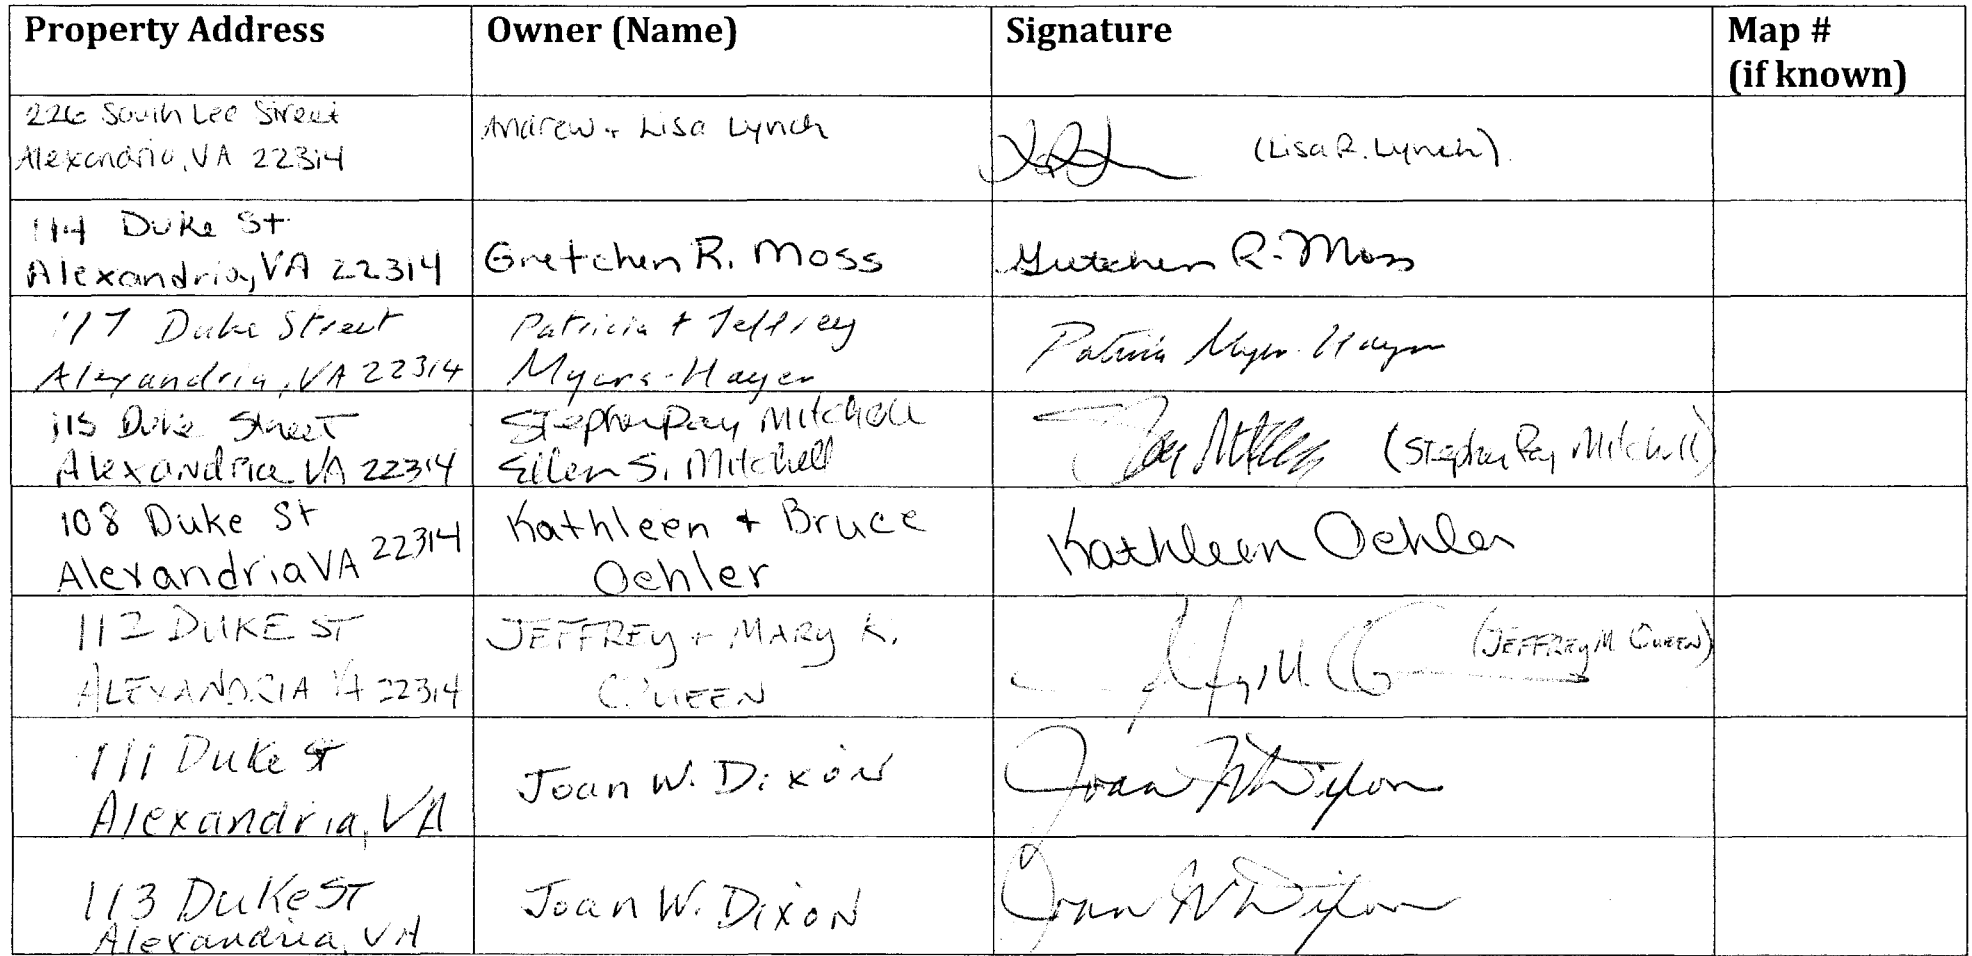 Property Address Owner (Name) Signature Map #
(if known)
226 South Lee Street
Alexandria, VA 22314
Andrew + Lisa Lynch
(Lisa R. Lynch).
114 Duke St
Alexandria, VA 22314
Gretchen R. Moss
Gretchen R. Moss
117 Duke Street
Alexandria, VA 22314
Patricia + Jeffrey
Myers-Hayer
Patricia Myers-Hayer
115 Duke Street
Alexandria VA 22314
Stephen Ray Mitchell
Ellen S. Mitchell
Ray Mitchell (Stephen Ray Mitchell)
108 Duke St
Alexandria VA 22314
Kathleen + Bruce
Oehler
Kathleen Oehler
112 DUKE ST
ALEXANDRIA VA 22314
JEFFREY + MARY K.
QUEEN
(JEFFREY M. QUEEN)
111 Duke St
Alexandria, VA
Joan W. Dixon
Joan W Dixon
113 Duke ST
Alexandria, VA
Joan W. Dixon
Joan W Dixon